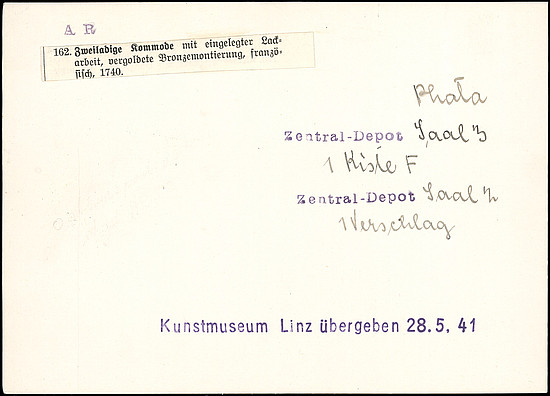 A R
162. Zweiladige Kommode mit eingelegter Lack-
arbeit, vergoldete Bronzemontierung, franzö-
sisch, 1740.
Phata
Zentral-Depot Saal
1 Kiste F
Zentral-Depot Saal
1 Verschlag
Kunstmuseum Linz übergeben 28.5, 41